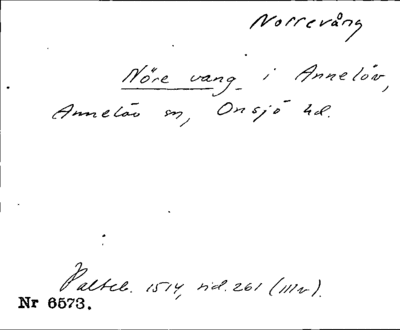 Norrevång
Nöre vang i Annelöv,
Annelöv sn, Onsjö hd.
Palteb. 1514, sid. 261 (IIIv).
Nr 6573.